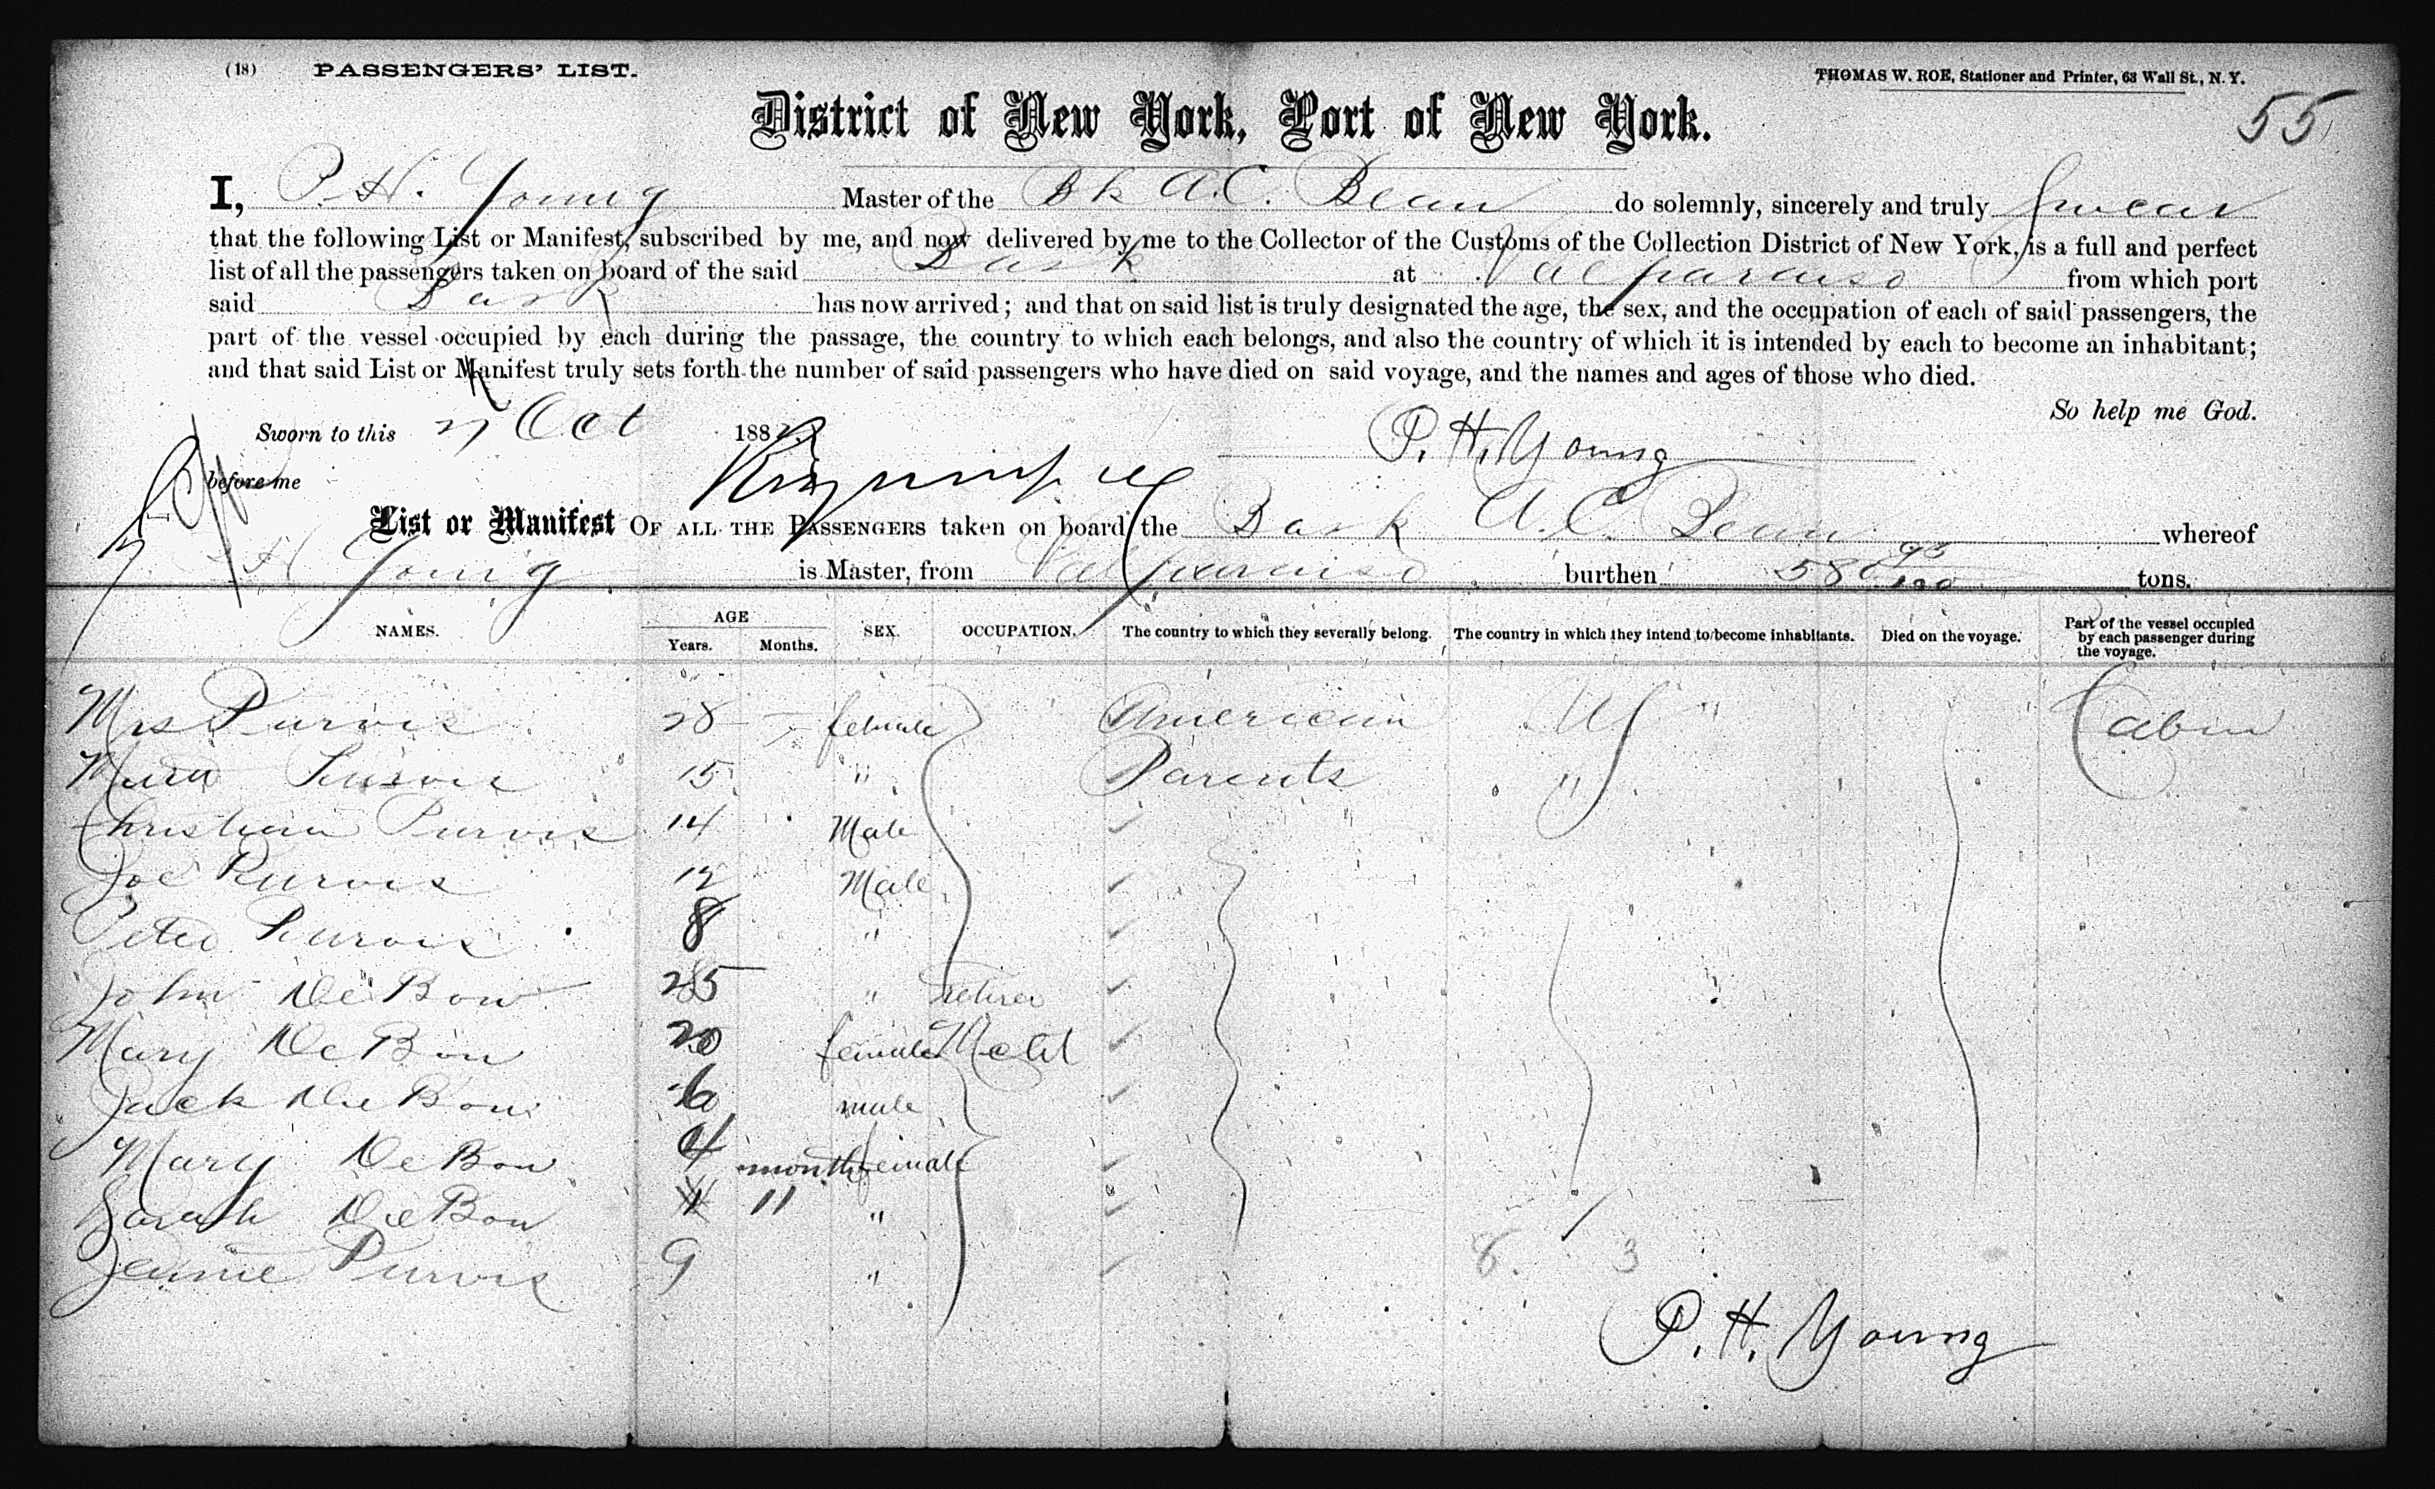 (18) PASSENGERS' LIST.
THOMAS W. ROE, Stationer and Printer, 63 Wall St., N. Y.
55
District of New York, Port of New York.
I, P. H. Young Master of the Bk A. C. Bean do solemnly, sincerely and truly Swear
that the following List or Manifest, subscribed by me, and now delivered by me to the Collector of the Customs of the Collection District of New York, is a full and perfect
list of all the passengers taken on board of the said Bark at Valparaiso from which port
said Bark has now arrived; and that on said list is truly designated the age, the sex, and the occupation of each of said passengers, the
part of the vessel occupied by each during the passage, the country to which each belongs, and also the country of which it is intended by each to become an inhabitant;
and that said List or Manifest truly sets forth the number of said passengers who have died on said voyage, and the names and ages of those who died.
So help me God.
Sworn to this Oct 188
P. H. Young
before me
List or Manifest OF ALL THE PASSENGERS taken on board the Bark A. C. Bean whereof
H Young is Master, from Valparaiso burthen 95/100 tons.
NAMES. AGE Years. Months. SEX. OCCUPATION. The country to which they severally belong. The country in which they intend to become inhabitants. Died on the voyage. Part of the vessel occupied by each passenger during the voyage.
Mrs Purvis 28 female American Cabin
Purvis 15 " Parents "
Christian Purvis 14 Male
Joe Purvis 12 Male
Peter Purvis 8 "
John De Bow 25 "
Mary De Bow 20 female
Jack De Bow 6 male
Mary De Bow 4 months female
Sarah De Bow 11 "
Jennie Purvis 9 "
8. 3
P. H. Young